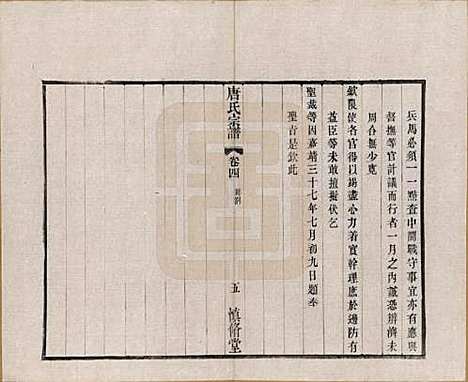 兵馬必須一一點查中間戰守事宜亦有應與
督撫等官計議而行者一月之內誠恐辦濟未
周合無少寬
欽限使各官得以竭盡心力着實幹理庶於邊防有
益臣等未敢擅擬伏乞
聖裁等因嘉靖三十七年七月初九日題奉
聖旨是欽此
唐氏宗譜
卷四
五
慎脩堂